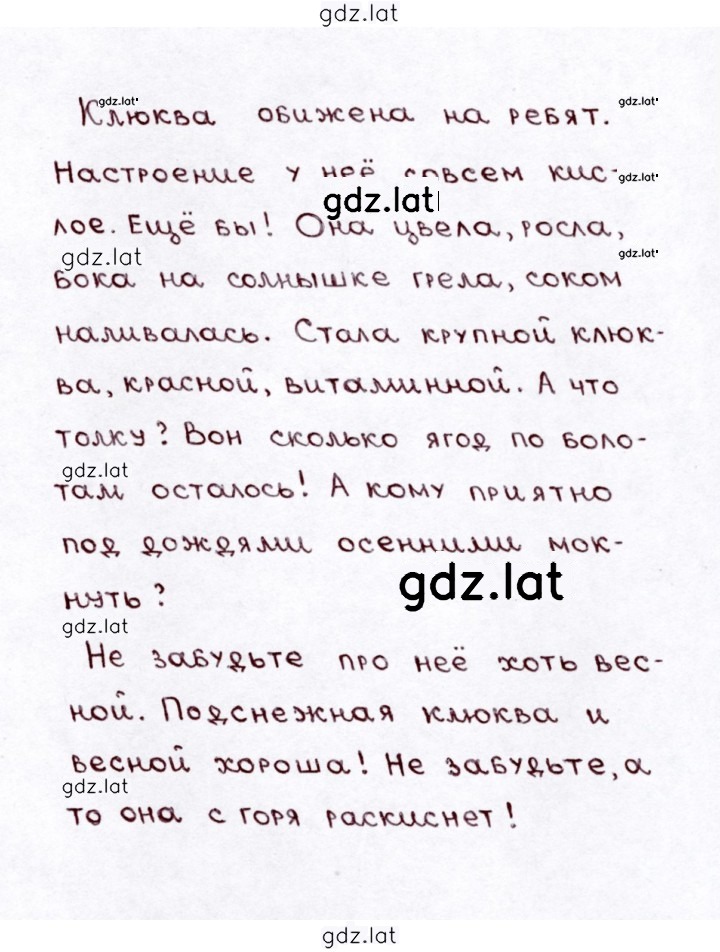 gdz.lat
gdz.lat' gdz.lat'
Клюква обижена на ребят.
Настроение у неё совсем кис- gdz.lat'
gdz.lat
лое. Ещё бы! Она цвела, росла,
gdz.lat gdz.lat'
бока на солнышке грела, соком
наливалась. Стала крупной клюк-
ва, красной, витаминной. А что
толку? Вон сколько ягод по боло-
gdz.lat
там осталось! А кому приятно
под дождями осенними мок-
gdz.lat
нуть?
gdz.lat
Не забудьте про неё хоть вес-
ной. Подснежная клюква и
весной хороша! Не забудьте, а
gdz.lat
то она с горя раскиснет!
gdz.lat